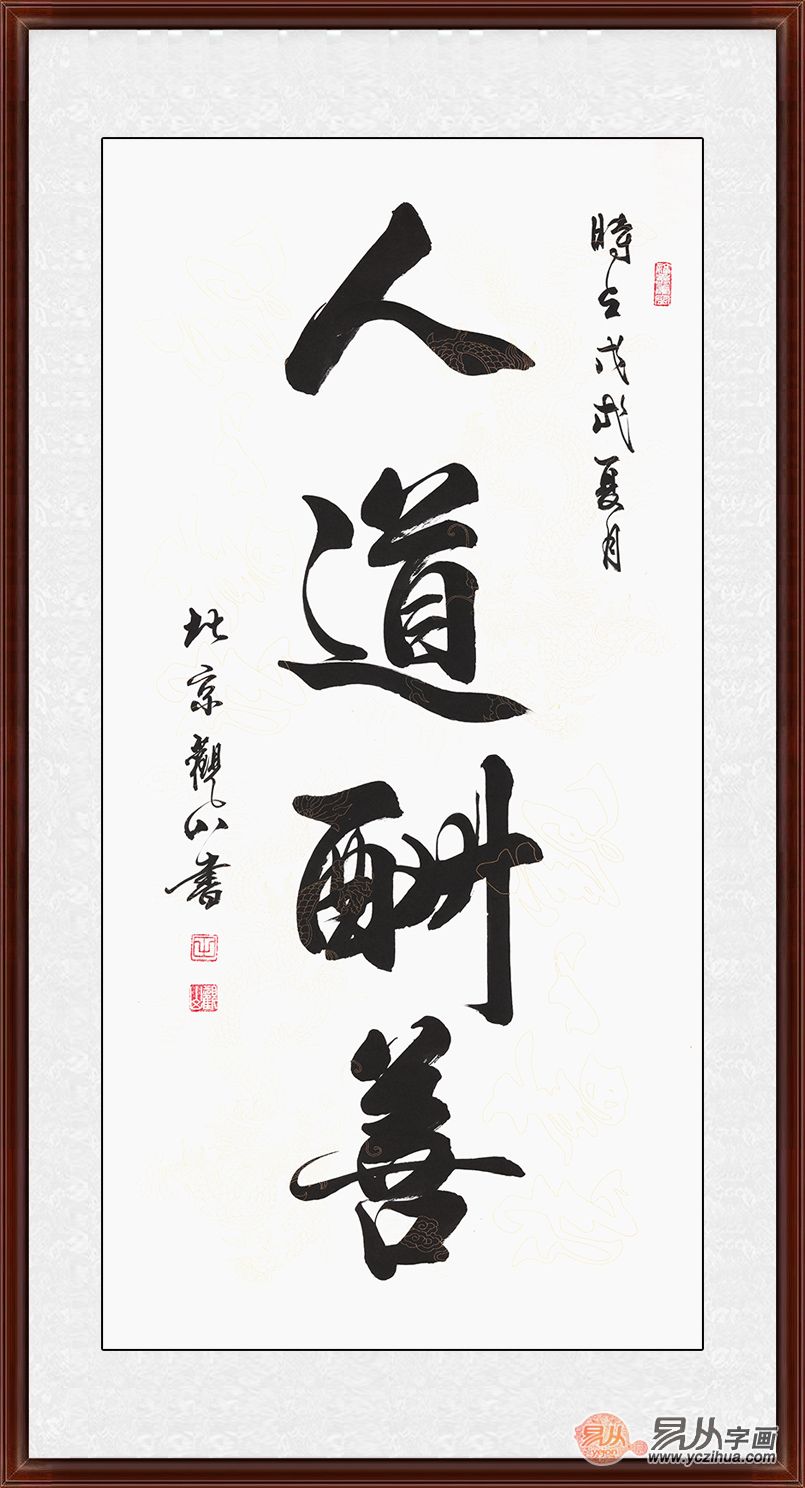 時在戊戌夏月
人道酬善
北京觀山書
易从
yicong
易从字画
www.yczihua.com